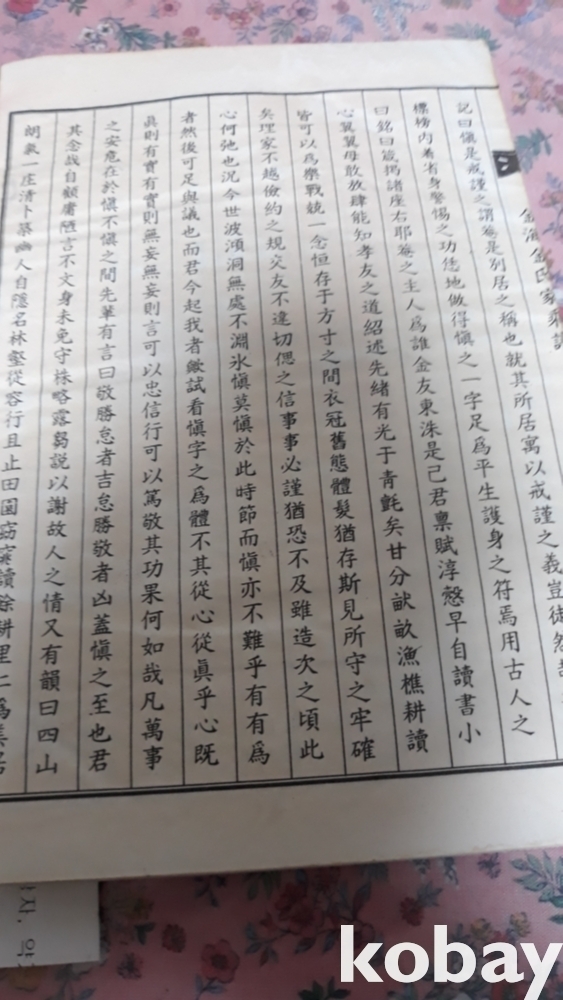 金海金氏家乘譜
記曰愼是戒謹之謂菴是別居之称也就其所居寓以戒謹之義豈徒然哉
標榜內着省身警惕之功恁地做得愼之一字足爲平生護身之符焉用古人之
曰銘曰箴揭諸座右耶菴之主人爲誰金友東洙是己君稟賦淳慤早自讀書小
心翼翼毋敢放肆能知孝友之道紹述先緖有光于靑氈矣甘分畎畝漁樵耕讀
皆可以爲樂戰兢一念恒存于方寸之間衣冠舊態體髮猶存斯見所守之牢確
矣理家不越儉約之規交友不違切偲之信事事必謹猶恐不及雖造次之頃此
心何弛也況今世波澒洞無處不淵氷愼莫愼於此時節而愼亦不難乎有有爲
者然後可足與議也而君今起我者歟試看愼字之爲體不其從心從眞乎心旣
眞則有實有實則無妄無妄則言可以忠信行可以篤敬其功果何如哉凡萬事
之安危在於愼不愼之間先軰有言曰敬勝怠者吉怠勝敬者凶蓋愼之至也君
其念哉自顧庸陋言不文身未免守株略露芻說以謝故人之情又有韻曰四山
朝氣一庄淸卜築幽人自隱名林壑從容行且止田園窈窕讀餘耕里仁爲美居
kobay